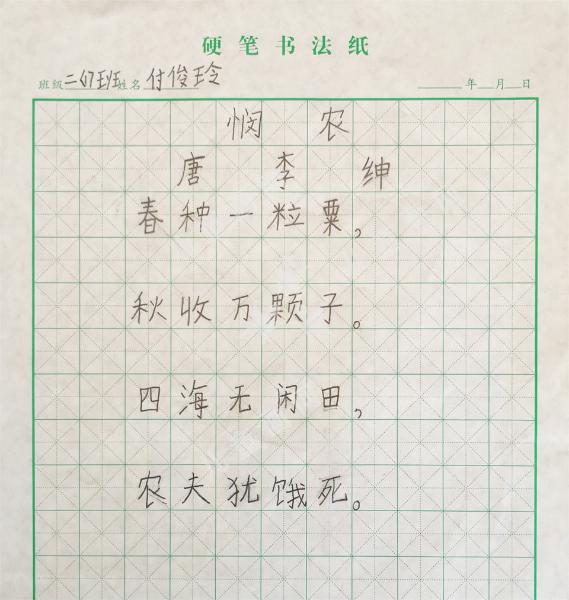 硬笔书法纸
班级二(7)班姓名付俊玲 年 月 日
悯农
唐 李绅
春种一粒粟,
秋收万颗子。
四海无闲田,
农夫犹饿死。